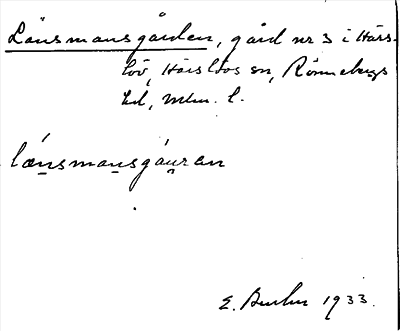 Länsmansgården, gård nr 3 i Härs-
löv, Härslövs sn, Rönnebergs
hd, Mlm. l.
länsmansgåuran
E. 1933.